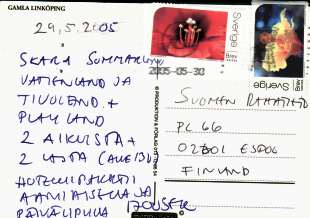 GAMLA LINKÖPING
29.5.2005
SKARA SOMMARLAND
VATTENLAND JA
TIVOLEND +
PLAYLAND
2 AIKUISTA +
2 LASTA (ALLE 13V)
HOTELLIPAKETTI
AAMIAISELLA JA
PÄIVÄLIPULLA
Sverige
Sverige
2005-05-30
SUOMEN
PL 66
02601 ESPOO
FINLAND